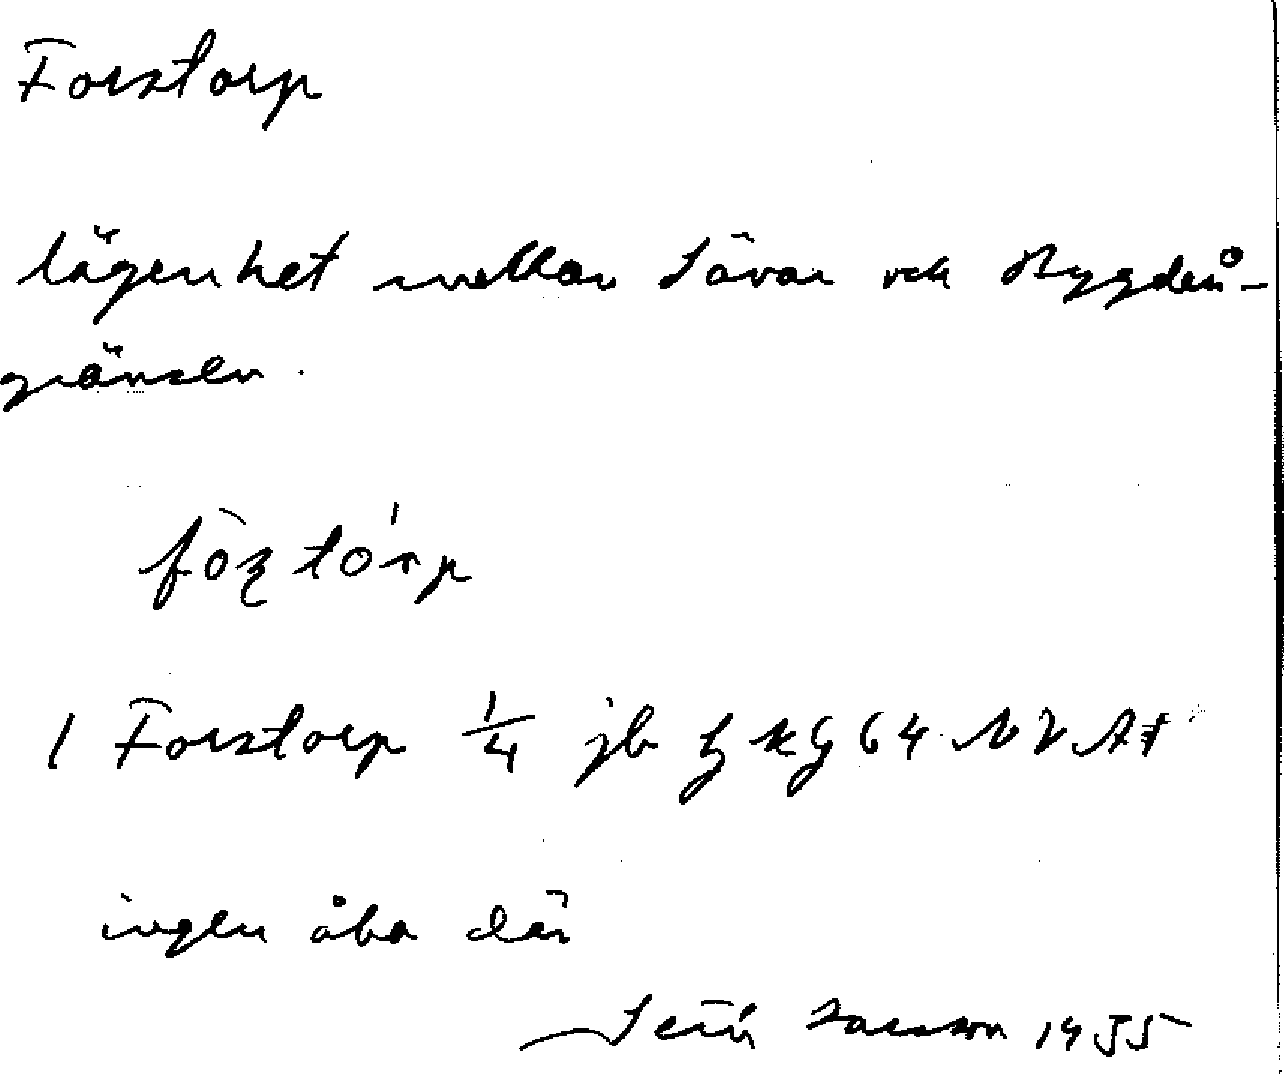 Forstorp
lägenhet mellan Sävar och Bygdeå-
gränsen.
1 Forstorp 1/4 jb
ingen åbo där
Larsson 1955